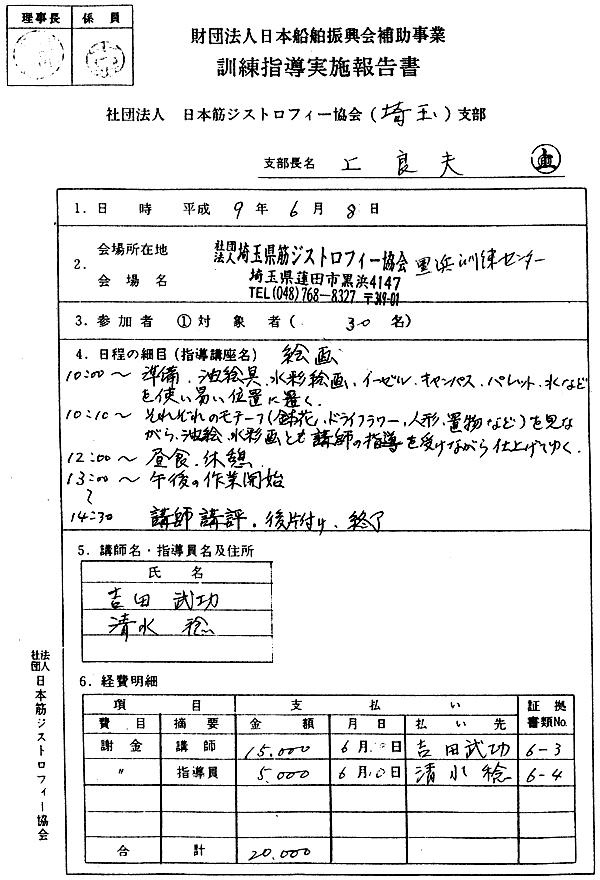 理事長 係員
財団法人日本船舶振興会補助事業
訓練指導実施報告書
社団法人 日本筋ジストロフィー協会(埼玉)支部
支部長名 上 良夫
1.日 時 平成 9年 6月 8日
2. 会場所在地 社団法人 埼玉県筋ジストロフィー協会 黒浜訓練センター
会場名 埼玉県蓮田市黒浜4147
TEL(048)768-8327 〒349-01
3.参加者 ①対象者( 30名)
4.日程の細目(指導講座名) 絵画
10:00~ 準備.油絵具.水彩絵画、イーゼル.キャンバス.パレット.水など
を使い易い位置に置く.
10:10~ それぞれのモチーフ(鉢花、ドライフラワー、人形、置物など)を見な
がら、油絵、水彩画とも講師の指導を受けながら仕上げてゆく.
12:00~ 昼食.休憩
13:00~ 午後の作業開始
~
14:30 講師講評.後片付け.終了
5.講師名・指導員名及住所
氏名
吉田武功
清水 稔
6.経費明細
項目 支払い 証拠書類No.
費目 摘要 金額 月日 払い先
謝金 講師 15.000 6月 日 吉田武功 6-3
〃 指導員 5.000 6月 日 清水 稔 6-4
合計 20.000
社団法人 日本筋ジストロフィー協会